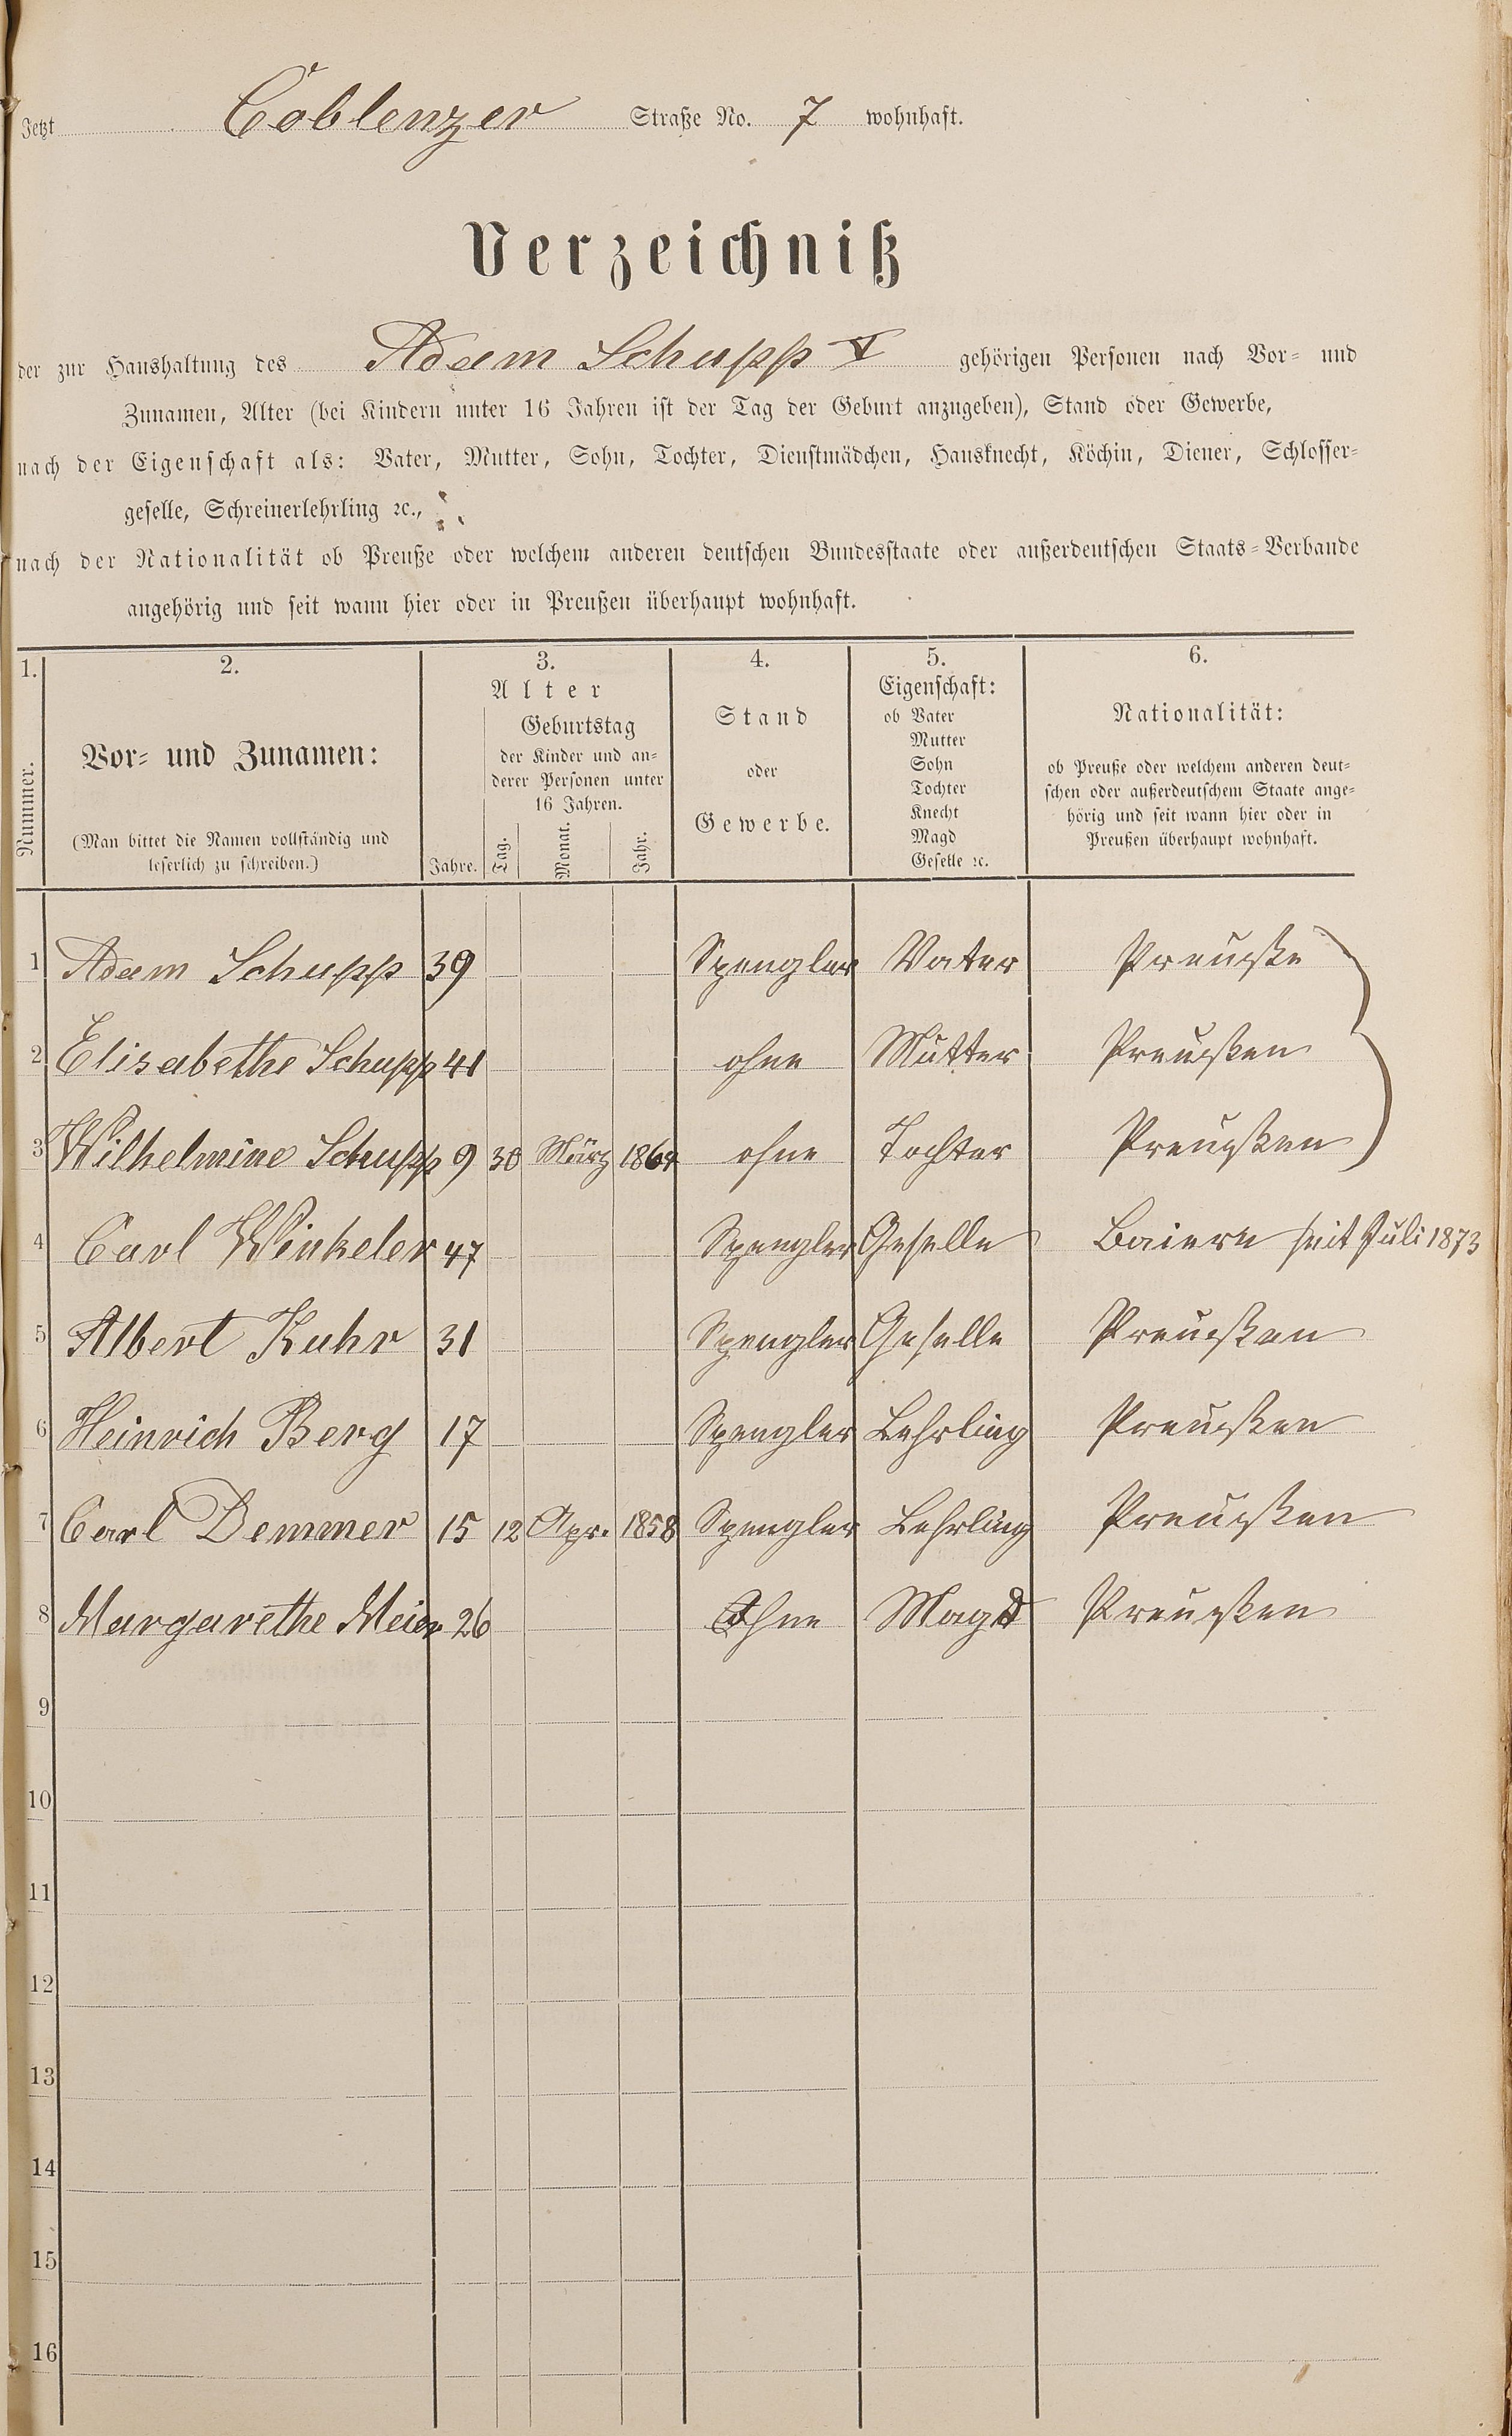 Jetzt Coblenzer Straße No. 7 wohnhaft.
Verzeichniß
der zur Haushaltung des Adam Schupp V gehörigen Personen nach Vor- und
Zunamen, Alter (bei Kindern unter 16 Jahren ist der Tag der Geburt anzugeben), Stand oder Gewerbe,
nach der Eigenschaft als: Vater, Mutter, Sohn, Tochter, Dienstmädchen, Hausknecht, Köchin, Diener, Schlosser-
geselle, Schreinerlehrling ꝛc.,
nach der Nationalität ob Preuße oder welchem anderen deutschen Bundesstaate oder außerdeutschen Staats-Verbande
angehörig und seit wann hier oder in Preußen überhaupt wohnhaft.
1. 2. 3. 4. 5. 6.
Nummer.
Vor- und Zunamen:
(Man bittet die Namen vollständig und
leserlich zu schreiben.)
Alter
Jahre.
Geburtstag
der Kinder und an-
derer Personen unter
16 Jahren.
Tag. Monat. Jahr.
Stand
oder
Gewerbe.
Eigenschaft:
ob Vater
Mutter
Sohn
Tochter
Knecht
Magd
Geselle ꝛc.
Nationalität:
ob Preuße oder welchem anderen deut-
schen oder außerdeutschem Staate ange-
hörig und seit wann hier oder in
Preußen überhaupt wohnhaft.
1 Adam Schupp 39 Spengler Vater Preuße
2 Elisabethe Schupp 41 ohne Mutter Preußen
3 Wilhelmine Schupp 9 30 März 1864 ohne Tochter Preußen
4 Carl Winkeler 47 Spengler Geselle Baiern seit Juli 1873
5 Albert Kuhr 31 Spengler Geselle Preußen
6 Heinrich Berg 17 Spengler Lehrling Preußen
7 Carl Demmer 15 12 Apr. 1858 Spengler Lehrling Preußen
8 Margarethe Meier 26 Ohne Magd Preußen
9
10
11
12
13
14
15
16